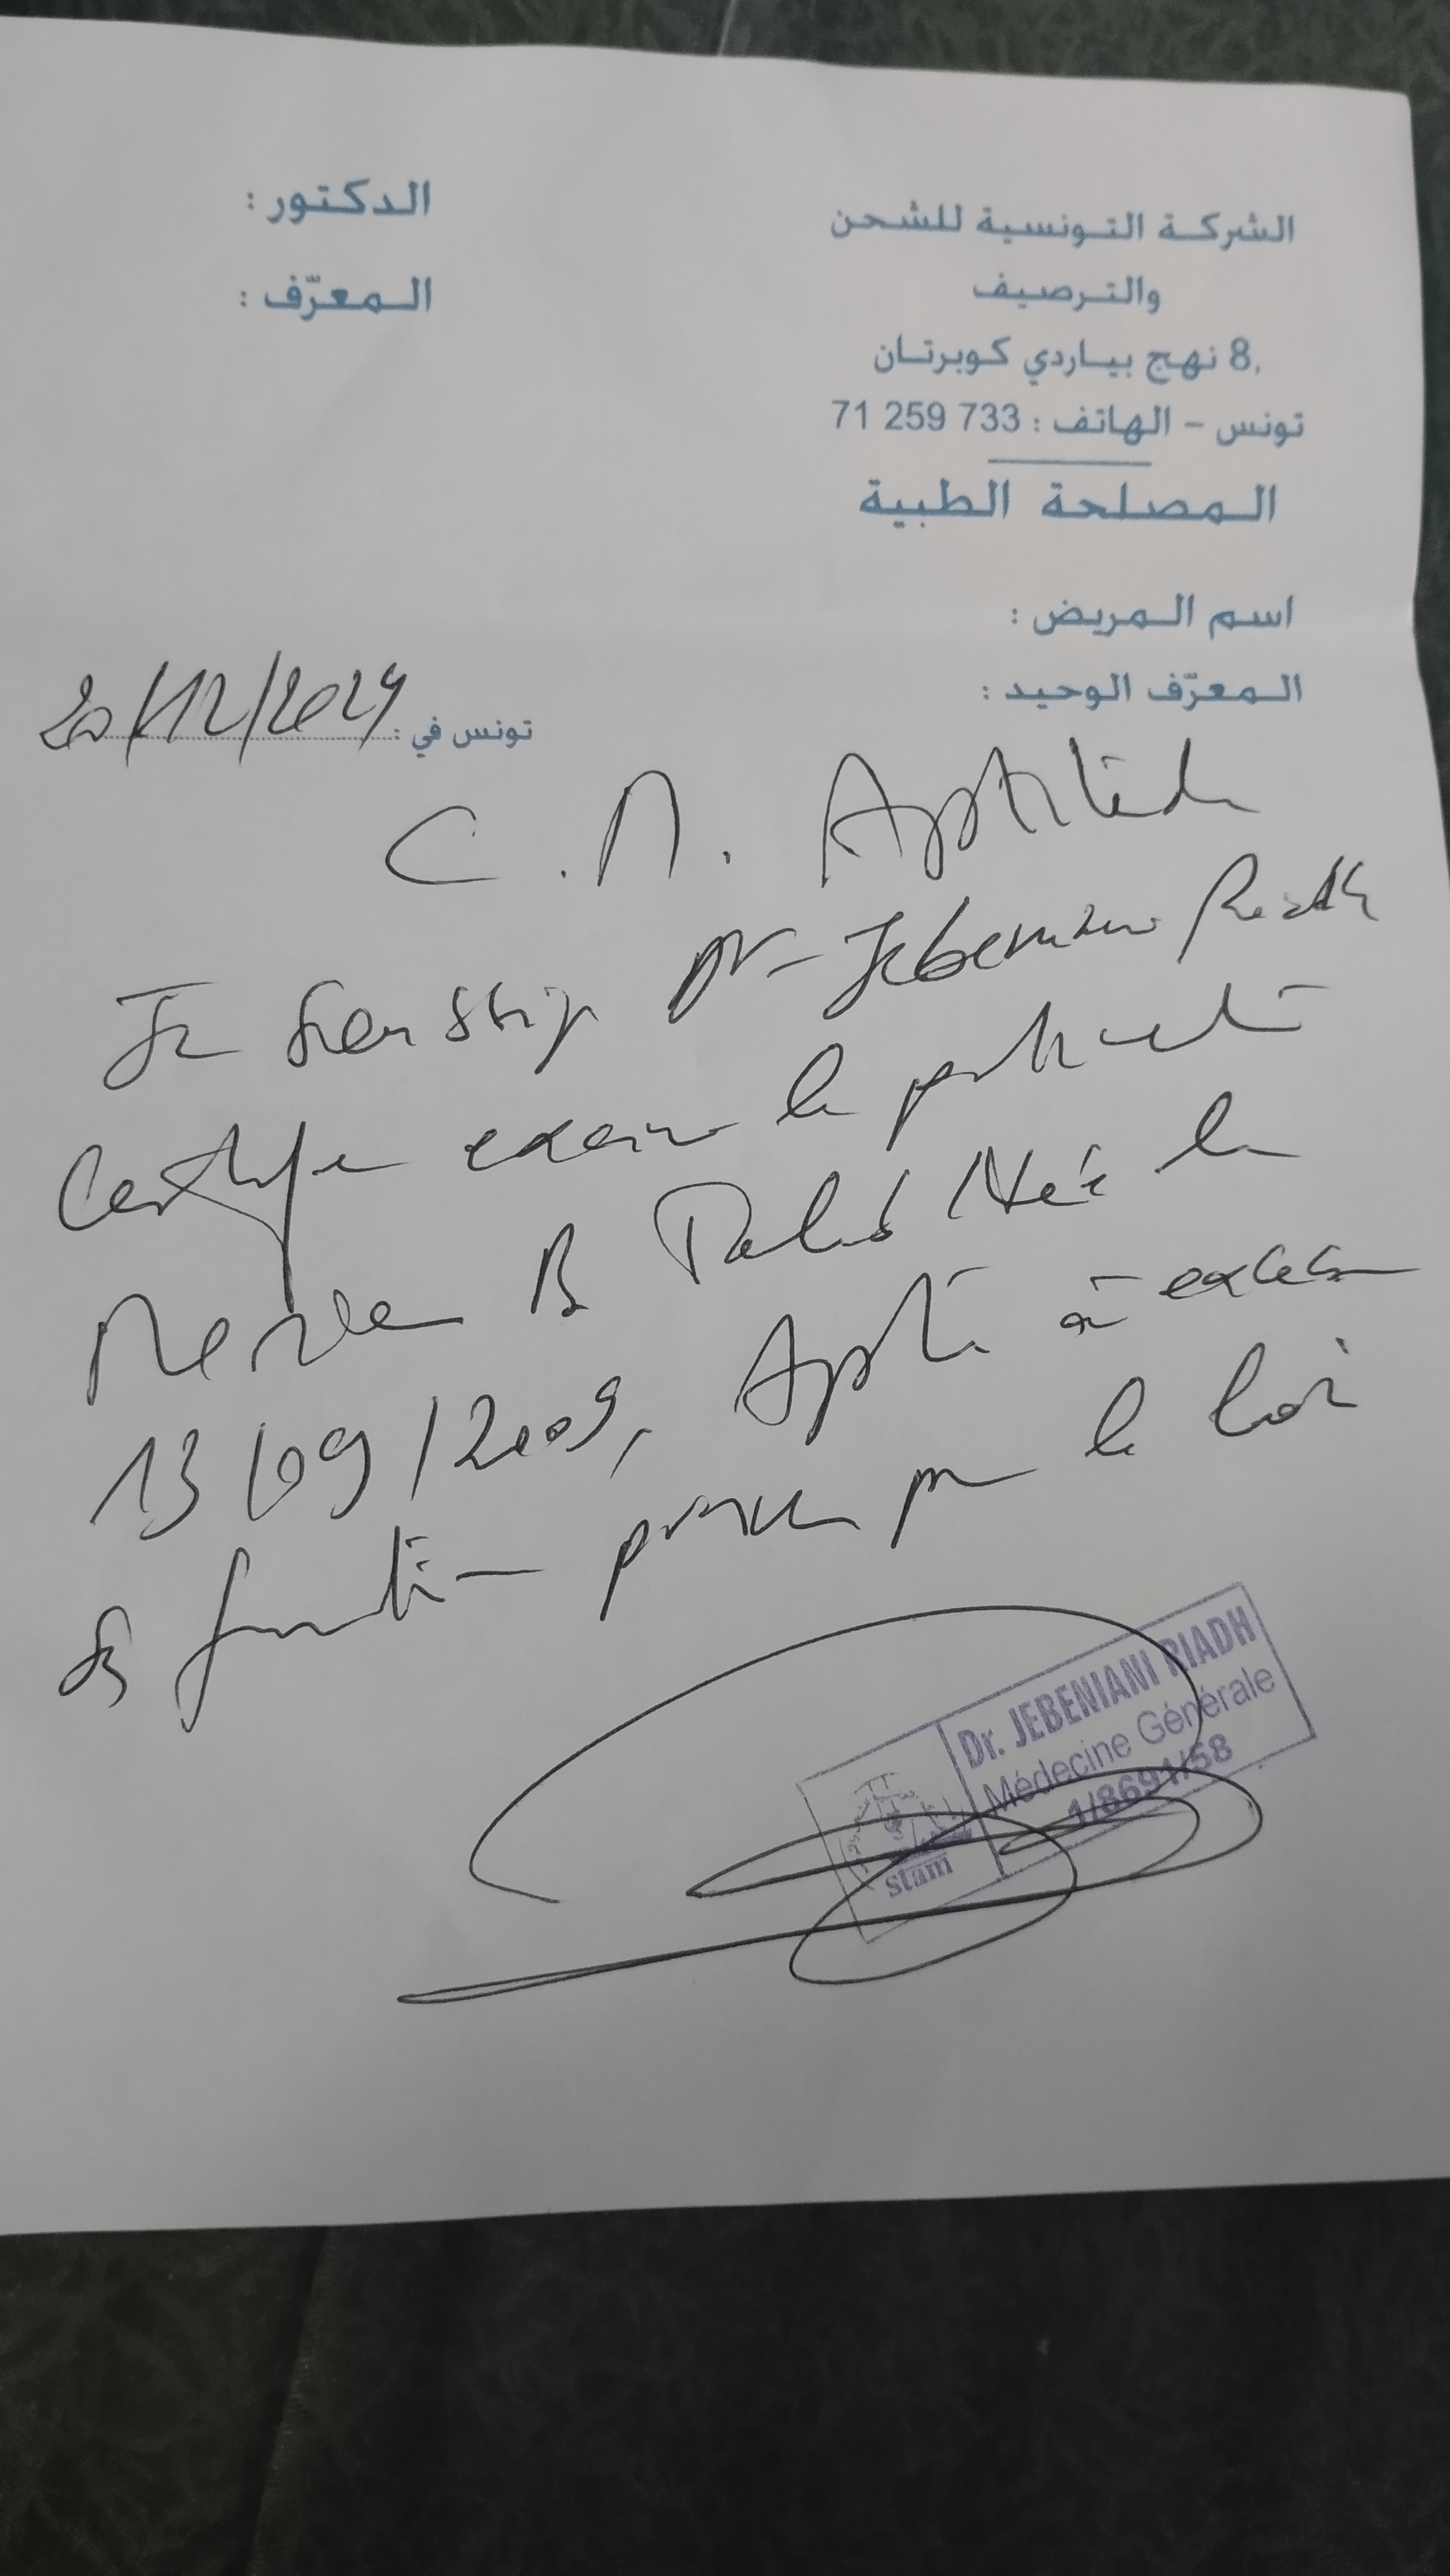 الشركة التونسية للشحن
والترصيف
8, نهج بياردي كوبرتان
تونس – الهاتف : 733 259 71
المصلحة الطبية
الدكتور :
المعرّف :
اسم المريض :
المعرّف الوحيد :
تونس في : 20/12/2024
C.M. Aptitude
Je soussigné Dr Jebeniani Riadh
Certifie examiné le
B Née le
13/09/2009, Apte à exercer
fonction prévue par la loi
Dr. JEBENIANI RIADH
Médecine Générale
1/8691/58
stam